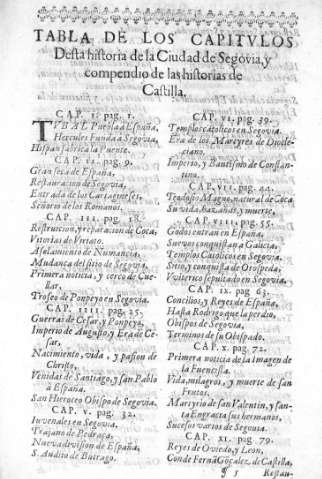 TABLA DE LOS CAPITVLOS
Desta historia de la Ciudad de Segovia, y
compendio de las historias de
Castilla.
CAP. i. pag. 1.
TVBAL Puebla à España,
Hercules Funda à Segovia,
Hispan fabrica la Puente.
CAP. ii. pag. 9.
Gran seca de España.
Restauracion de Segovia,
Entrada de los Cartagineses,
Señorio de los Romanos.
CAP. III. pag. 18.
Restruicion, y reparacion de Coca,
Vitorias de Viriato.
Assolamiento de Numancia,
Mudança del sitio de Segovia.
Primera noticia, y cerco de Cue-
llar,
Trofeo de Pompeyo en Segovia.
CAP. IIII. pag. 25.
Guerras de Cesar, y Pompeyo,
Imperio de Augusto, y Era de Ce-
sar,
Nacimiento, vida, y passion de
Christo,
Venidas de Santiago, y san Pablo
à España.
San Hieroteo Obispo de Segovia.
CAP. v. pag. 32.
Iuvenales en Segovia,
Trajano de Pedraça,
Nueva division de España,
S. Audito de Buitrago.
CAP. vi. pag. 39.
Templos catolicos en Segovia.
Era de los Martyres de Diocle-
ciano,
Imperio, y Bautismo de Constan-
tino.
CAP. VII. pag. 44.
Teodosio Magno, natural de Coca,
Su vida, hazañas, y muerte,
CAP. VIII. pag. 55.
Godos entran en España,
Suevos conquistan à Galicia,
Templos Catolicos en Segovia,
Sitio, y conquista de Orospeda,
Vviterico sepultado en Segovia.
CAP. ix. pag. 63.
Concilios, y Reyes de España,
Hasta Rodrigo que la perdio,
Obispos de Segovia,
Terminos de su Obispado.
CAP. x. pag. 72.
Primera noticia de la Imagen de
la Fuencisla.
Vida, milagros, y muerte de san
Frutos.
Martyrio de san Valentin, y san-
ta Engracia sus hermanos,
Sucesos varios de Segovia.
CAP. xi. pag. 79.
Reyes de Oviedo, y Leon,
Conde Fernã Gõçalez, de Castilla,
Restau-